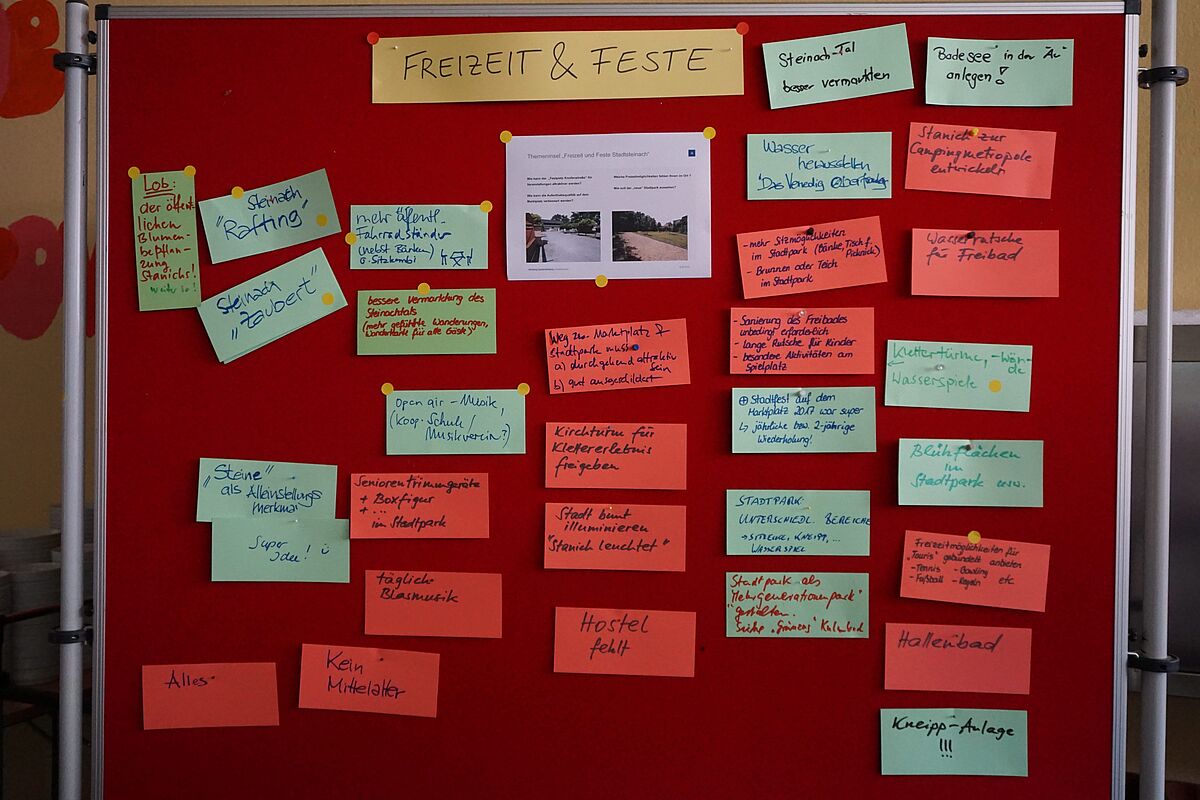 FREIZEIT & FESTE
Steinach-Tal
besser vermarkten
Badesee in der Au
anlegen!
Themeninsel „Freizeit und Feste Stadtsteinach"
Wasser
herausstellen
"Das Venedig Oberfrankens
Stanich zur
Campingmetropole
entwickeln
Lob:
der öffent-
lichen
Blumen-
bepflan-
zung
Stanichs!
Weiter so!
Steinach
"Rafting"
Steinach
"Zaubert"
mehr öffentl.
Fahrradständer
(nebst Bänken)
o. Sitzkombi
bessere Vermarktung des
Steinachtals
(mehr geführte Wanderungen,
Wanderkarte für alle Gäste)
Weg zum Marktplatz
Stadtpark muss
a) durchgehend attraktiv
sein
b) gut ausgeschildert
- mehr Sitzmöglichkeiten
im Stadtpark (Bänke, Tisch f.
Picknick)
- Brunnen oder Teich
im Stadtpark
Wasserrutsche
für Freibad
- Sanierung des Freibades
unbedingt erforderlich
- lange Rutsche für Kinder
- besondere Aktivitäten am
Spielplatz
Klettertürme, -wän-
de
Wasserspiele
open air - Musik,
(Koop. Schule/
Musikverein?)
⊕ Stadtfest auf dem
Marktplatz 2017 war super
↳ jährliche bzw. 2-jährige
Wiederholung!
Kirchturm für
Klettererlebnis
freigeben
Blühflächen
im
Stadtpark usw.
„Steine"
als Alleinstellungs
merkmal
Super
Idee!
Seniorentrimmgeräte
+ Boxfigur
+ ...
im Stadtpark
Stadt bunt
illuminieren
"Stanich leuchtet"
STADTPARK:
UNTERSCHIEDL. BEREICHE
→ SITZECKE, KNEIPP, ...
WASSERSPIEL
Freizeitmöglichkeiten für
„Touris" gebündelt anbieten
- Tennis - Bowling
- Fußball - Kegeln etc
tägliche
Blasmusik
Stadtpark als
"Mehrgenerationenpark"
gestalten.
Siehe „Grünzug" Kulmbach
Hostel
fehlt
Hallenbad
Alles
Kein
Mittelalter
Kneipp-Anlage
!!!